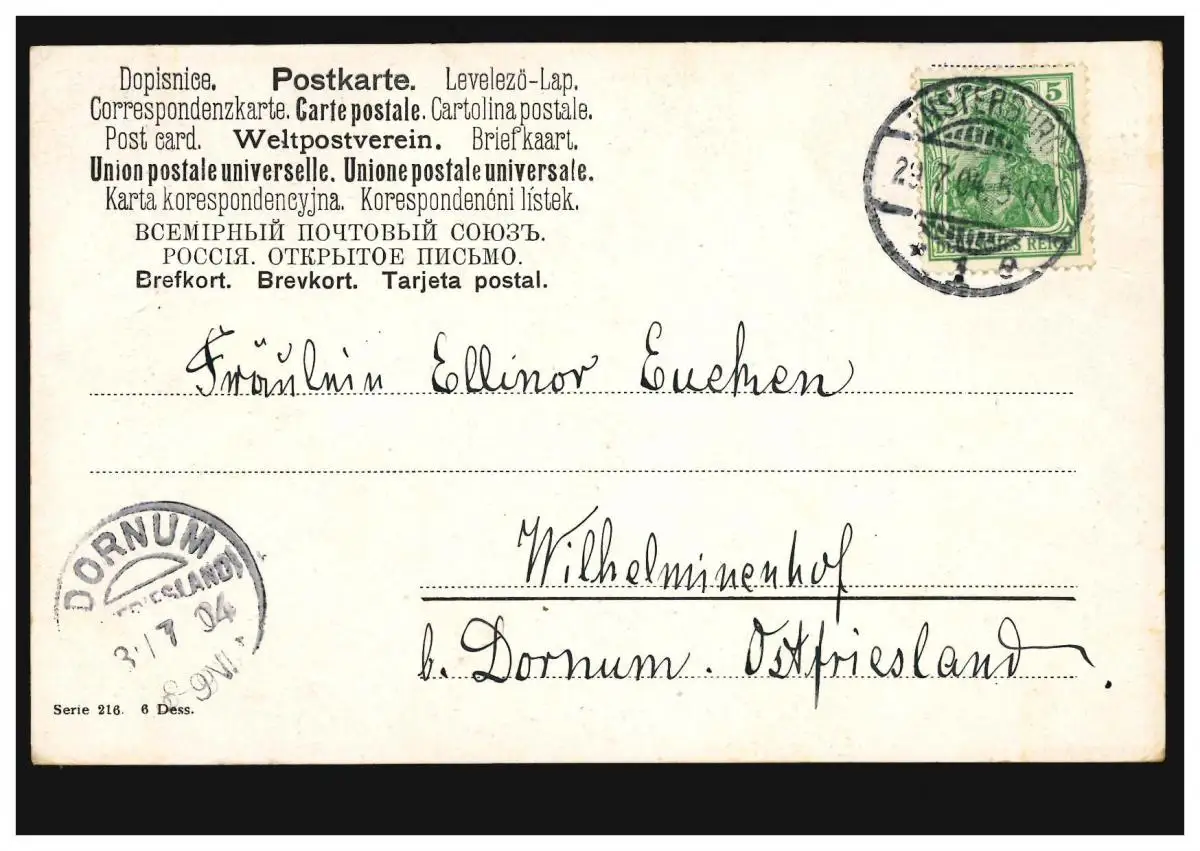 Dopisnice. Postkarte. Levelező-Lap.
Correspondenzkarte. Carte postale. Cartolina postale.
Post card. Weltpostverein. Briefkaart.
Union postale universelle. Unione postale universale.
Karta korespondencyjna. Korespondenčni lístek.
ВСЕМІРНЫЙ ПОЧТОВЫЙ СОЮЗЪ.
РОССІЯ. ОТКРЫТОЕ ПИСЬМО.
Brefkort. Brevkort. Tarjeta postal.
5
29.7.04.
DEUTSCHES REICH
* 1 e
Fräulein Ellinor Eucken
Wilhelminenhof
b. Dornum. Ostfriesland.
DORNUM
7 04
Serie 216. 6 Dess.